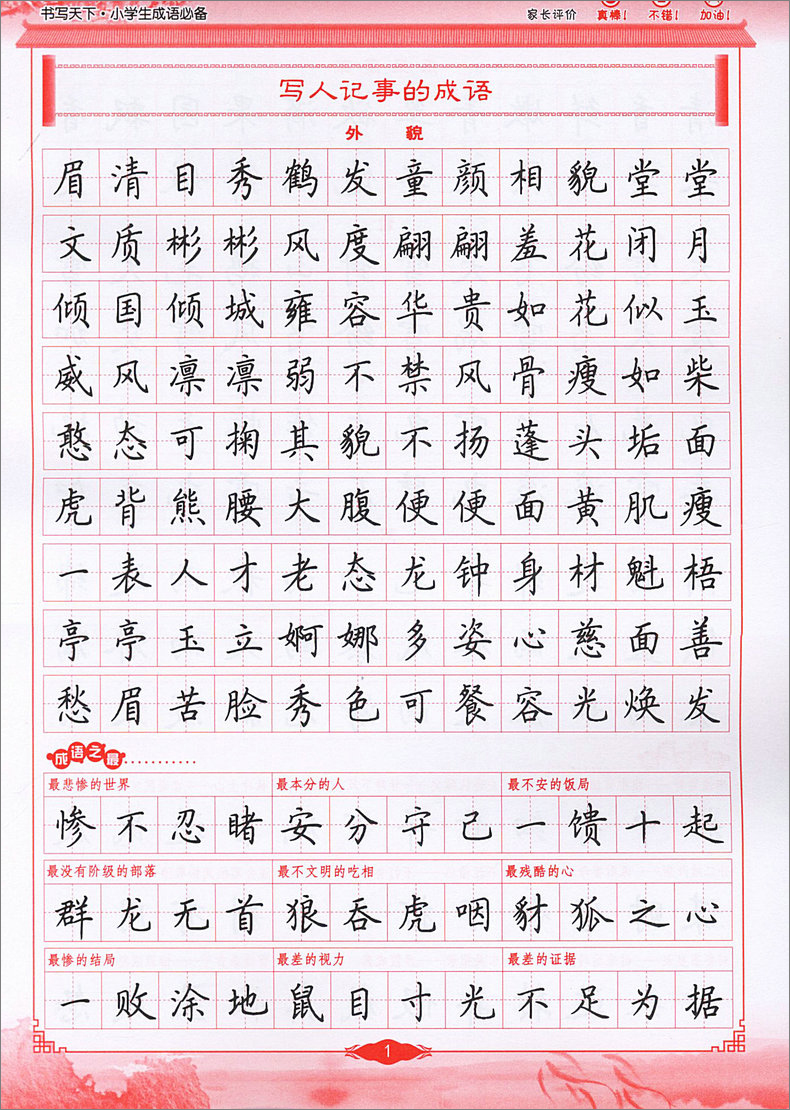 书写天下·小学生成语必备 家长评价 真棒! 不错! 加油!
写人记事的成语
外貌
眉清目秀鹤发童颜相貌堂堂
文质彬彬风度翩翩羞花闭月
倾国倾城雍容华贵如花似玉
威风凛凛弱不禁风骨瘦如柴
憨态可掬其貌不扬蓬头垢面
虎背熊腰大腹便便面黄肌瘦
一表人才老态龙钟身材魁梧
亭亭玉立婀娜多姿心慈面善
愁眉苦脸秀色可餐容光焕发
成语之最
最悲惨的世界 最本分的人 最不安的饭局
惨不忍睹安分守己一馈十起
最没有阶级的部落 最不文明的吃相 最残酷的心
群龙无首狼吞虎咽豺狐之心
最惨的结局 最差的视力 最差的证据
一败涂地鼠目寸光不足为据
1